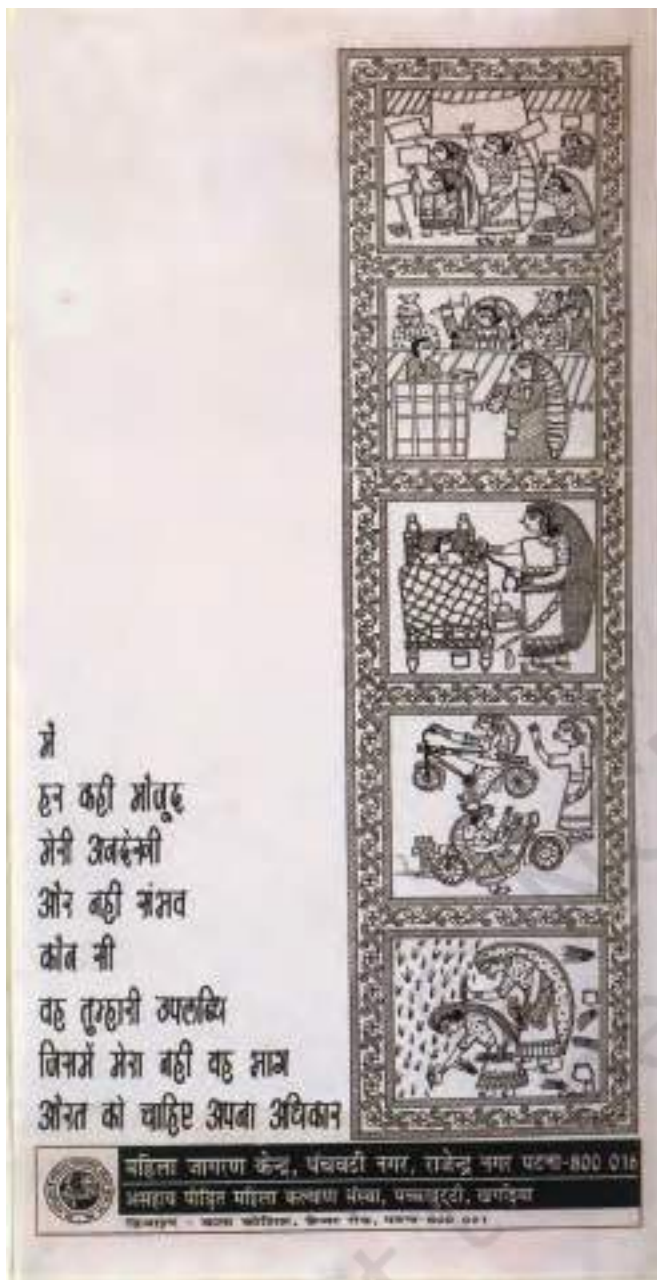 मैं
हर कहीं मौजूद
मेरी अनदेखी
और नहीं संभव
कौन सी
वह तुम्हारी उपलब्धि
जिसमें मेरा नहीं वह भाग
औरत को चाहिए अपना अधिकार
महिला जागरण केन्द्र, पंचवटी नगर, राजेन्द्र नगर पटना-800 016
असहाय पीड़ित महिला कल्याण संस्था, खगड़िया
डिजाइन - पटना 800 001